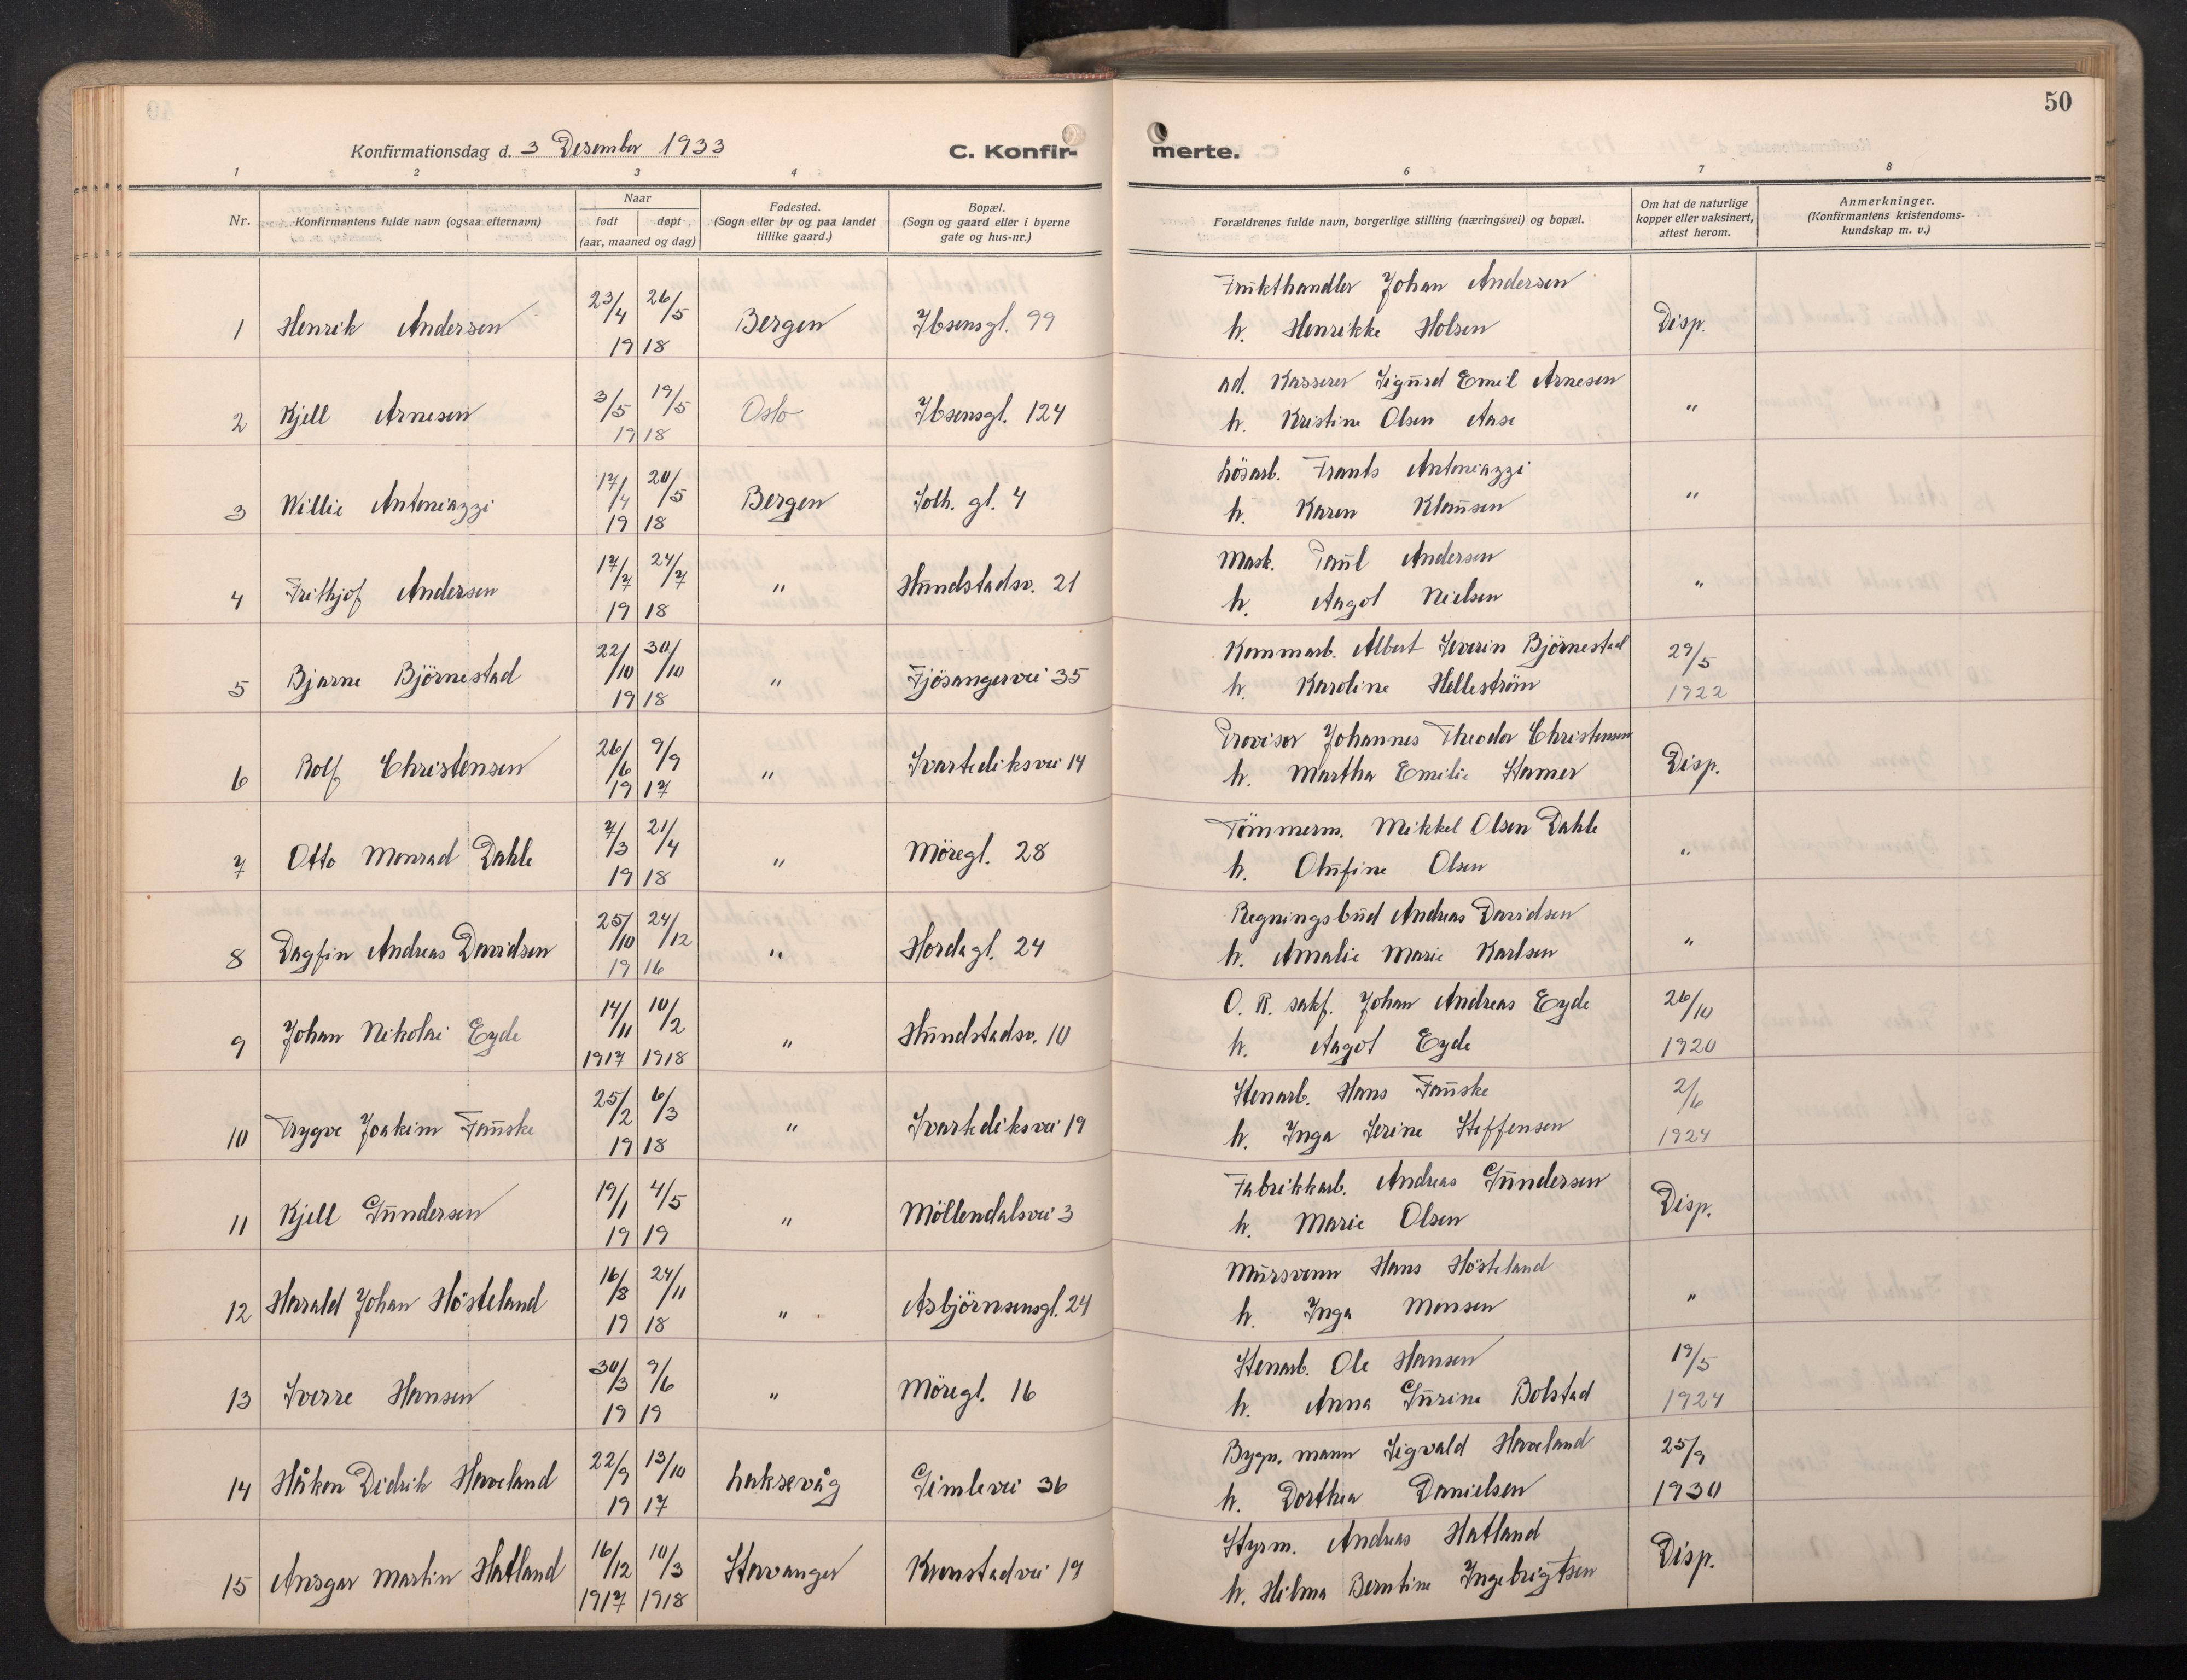 50
Konfirmationsdag d. 3 Desember 1933
C. Konfirmerte.
1 2 3 4 6 7 8
Nr. Konfirmantens fulde navn (ogsaa efternavn) Naar født døpt (aar, maaned og dag) Fødested. (Sogn eller by og paa landet tillike gaard.) Bopæl. (Sogn og gaard eller i byerne gate og hus-nr.) Forældrenes fulde navn, borgerlige stilling (næringsvei) og bopæl. Om hat de naturlige kopper eller vaksinert, attest herom. Anmerkninger. (Konfirmantens kristendomskundskap m. v.)
1 Henrik Andersen 23/4 26/5 1918 Bergen Ibsensgt. 99 Frukthandler Johan Andersen
h. Henrikke Holsen Disp.
2 Kjell Arnesen 3/5 19/5 1918 Oslo Ibsensgt. 124 ad. Kasserer Sigurd Emil Arnesen
h. Kristine Olsen Aase "
3 Willie Antoniazzi 17/4 20/5 1918 Bergen Solh. gt. 4 Lösarb. Frants Antoniazzi
h. Karen Klausen "
4 Frithjof Andersen 17/7 24/7 1918 " Hunstadsv. 21 Mask. Paul Andersen
h. Aagot Nielsen "
5 Bjarne Björnestad 22/10 30/10 1918 " Fjösangervei 35 Kommarb. Albert Severin Björnestad
h. Karoline Helleström 29/5 1922
6 Rolf Christensen 26/6 9/9 1917 " Svartediksvei 14 Provisor Johannes Theodor Christensen
h. Martha Emilie Hamer Disp.
7 Otto Monrad Dahle 7/3 21/4 1918 " Möregt. 28 Tömmerm. Mikkel Olsen Dahle
h. Olufine Olsen "
8 Dagfin Andreas Davidsen 25/10 24/12 1916 " Hordagt. 24 Regningsbud Andreas Davidsen
h. Amalie Marie Karlsen "
9 Johan Nikolai Eyde 14/11 10/2 1917 1918 " Hundstadsv. 10 O. R. sakf. Johan Andreas Eyde
h. Aagot Eyde 26/10 1920
10 Trygve Joakim Fauske 25/2 6/3 1918 " Svartediksvei 19 Stenarb. Hans Fauske
h. Inga Serine Steffensen 2/6 1924
11 Kjell Gundersen 19/1 4/5 1919 " Möllendalsvei 3 Fabrikkarb. Andreas Gundersen
h. Marie Olsen Disp.
12 Harald Johan Hösteland 16/8 24/11 1918 " Asbjörnsensgt. 24 Mursvenn Hans Hösteland
h. Inga Monsen "
13 Sverre Hansen 30/3 9/6 1919 " Möregt. 16 Stenarb. Ole Hansen
h. Anna Gurine Bolstad 19/5 1924
14 Håkon Didrik Haveland 22/9 13/10 1917 Laksevåg Gimlevei 36 Bygn. mann Sigvald Haveland
h. Dorthea Danielsen 25/9 1930
15 Ansgar Martin Hatland 16/12 10/3 1917 1918 Stavanger Kronstadvei 19 Styrm. Andreas Hatland
h. Hilma Berntine Ingebrigtsen Disp.